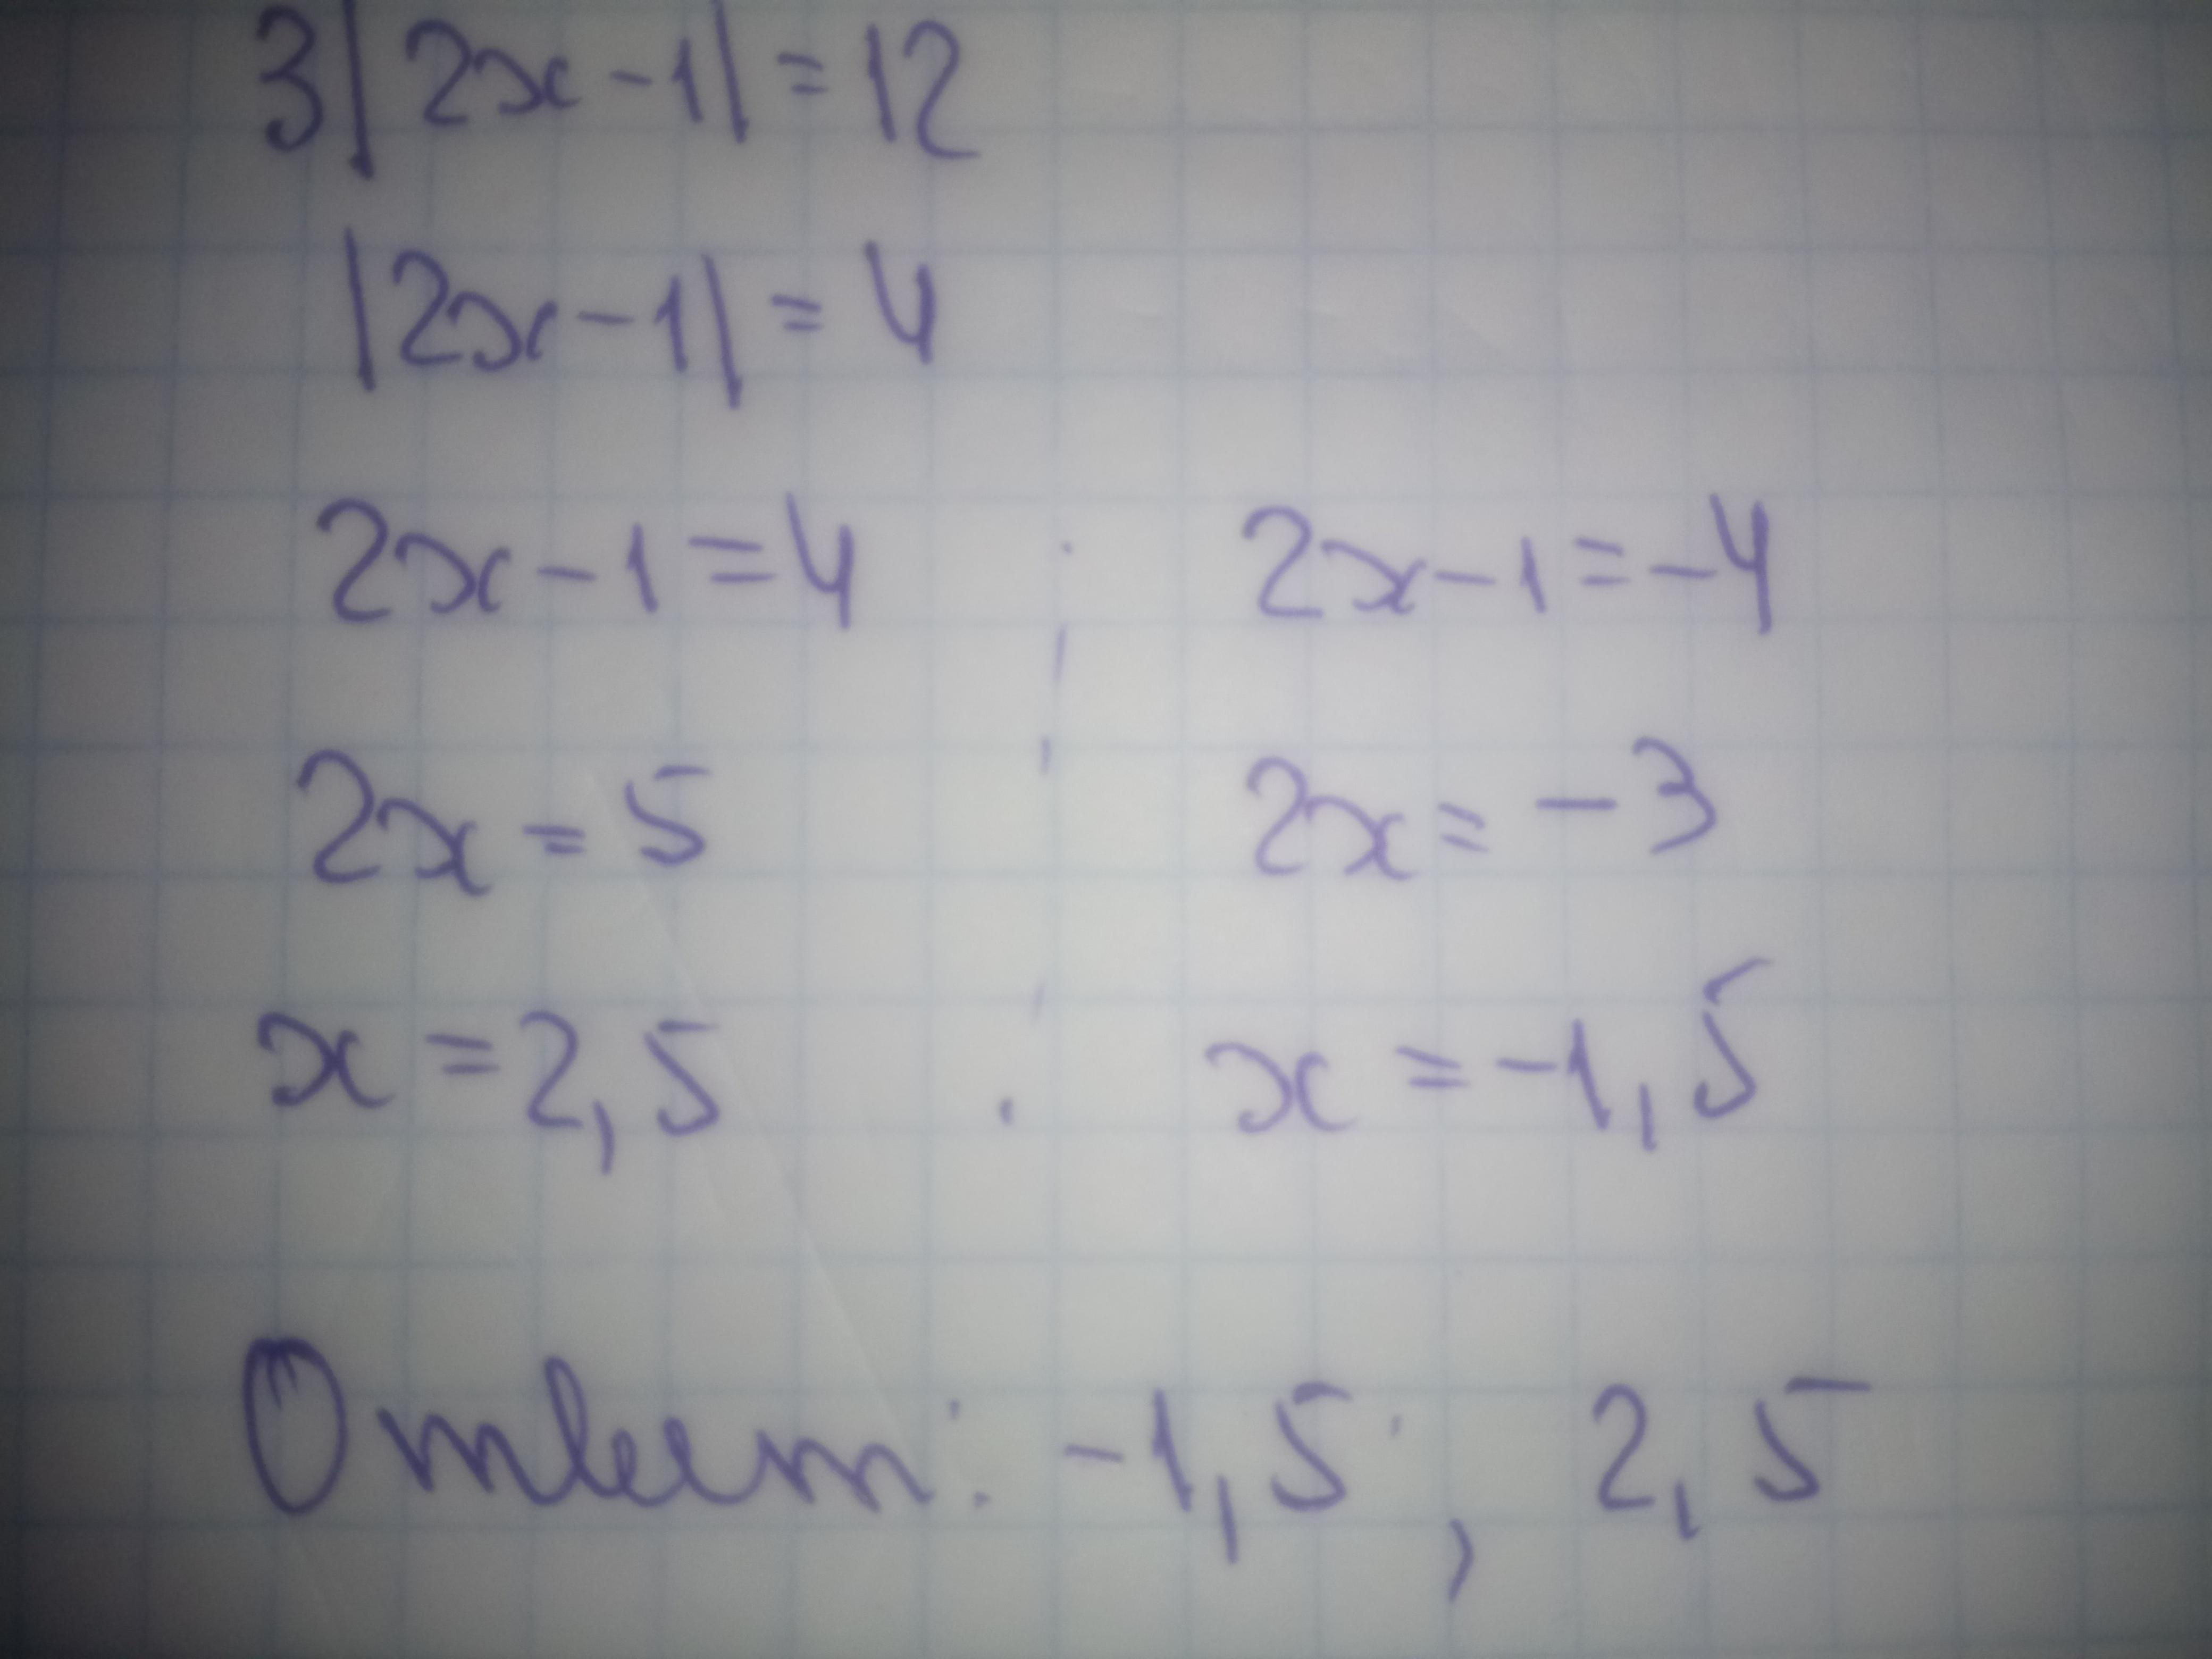 3|2x-1|=12
|2x-1|=4
2x-1=4 2x-1=-4
2x=5 2x=-3
x=2,5 x=-1,5
Ответ: -1,5; 2,5